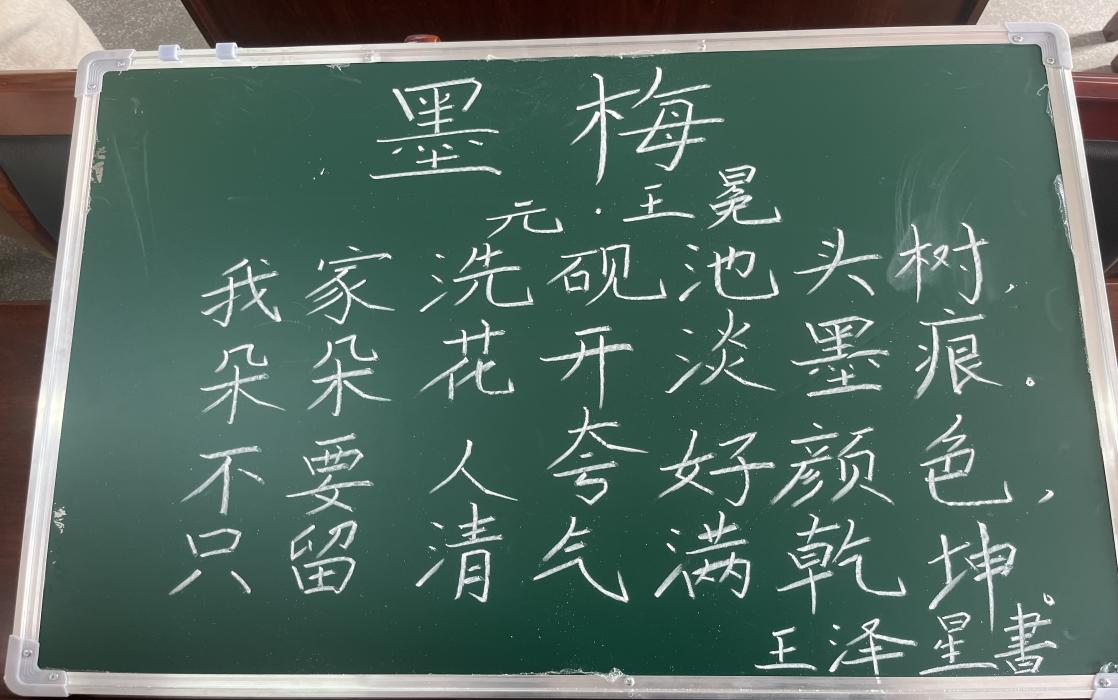 墨梅
元·王冕
我家洗砚池头树,
朵朵花开淡墨痕。
不要人夸好颜色,
只留清气满乾坤。
王泽星書